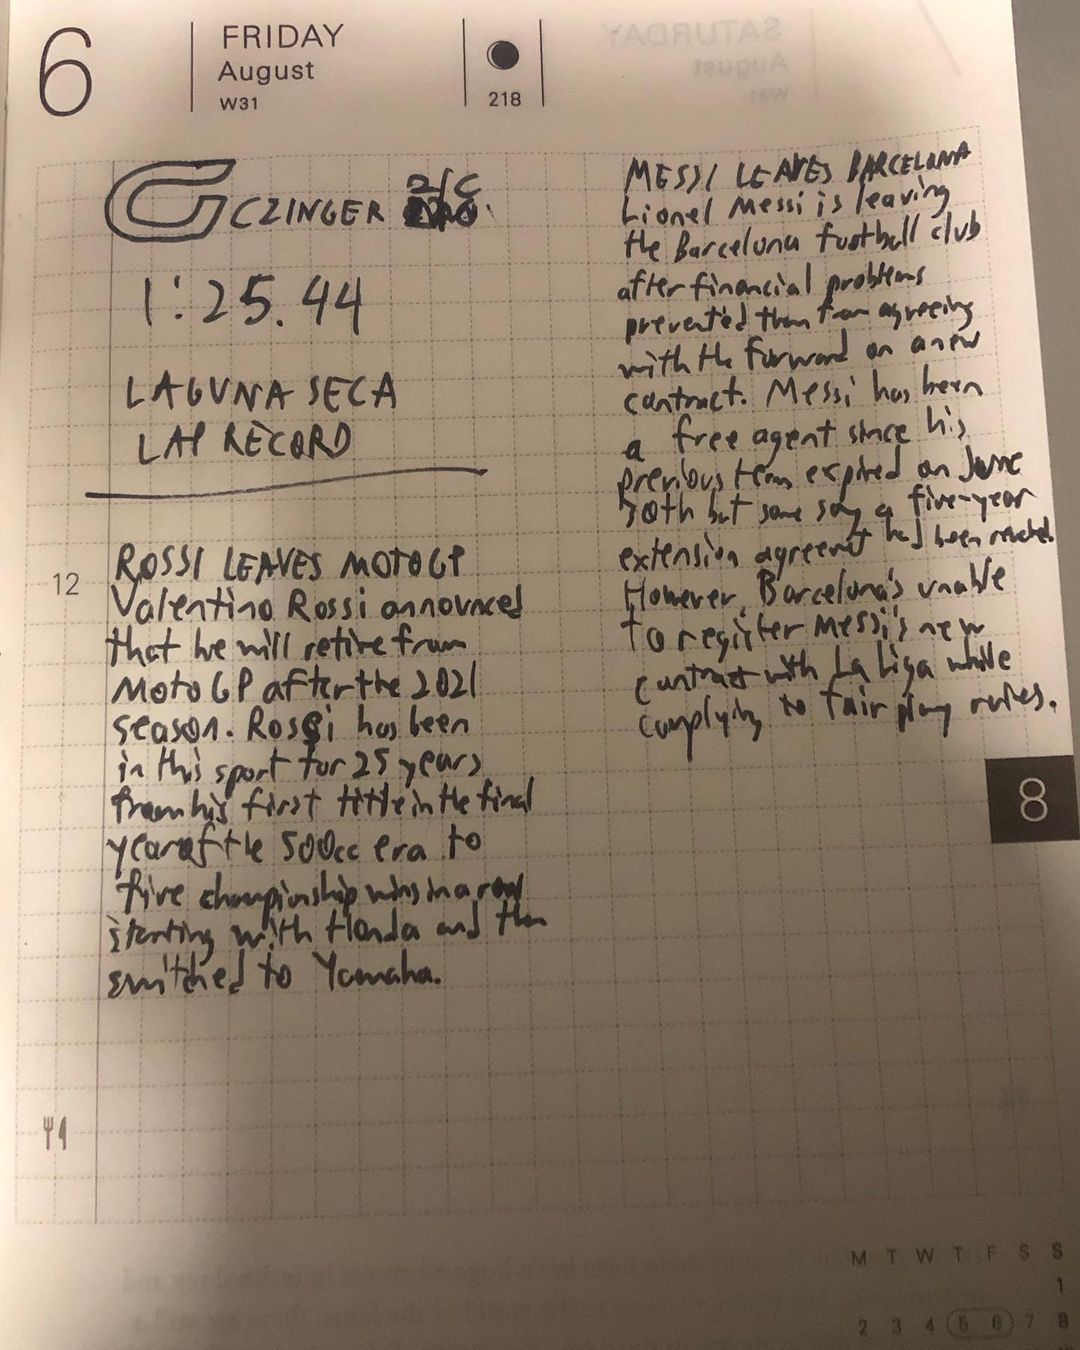 6
FRIDAY
August
W31
218
SATURDAY
August
CZINGER 21C
1:25.44
LAGUNA SECA
LAP RECORD
12
ROSSI LEAVES MOTOGP
Valentino Rossi announced
that he will retire from
MotoGP after the 2021
season. Rossi has been
in this sport for 25 years
from his first title in the final
year of the 500cc era to
five championship wins in a row
starting with Honda and then
switched to Yamaha.
MESSI LEAVES BARCELONA
Lionel Messi is leaving
the Barcelona football club
after financial problems
prevented them from agreeing
with the forward on a new
contract. Messi has been
a free agent since his
previous term expired on June
30th but some say a five-year
extension agreement had been reached.
However Barcelona's unable
to register Messi's new
contract with La Liga while
complying to fair play rules.
8
M T W T F S S
1
2 3 4 5 6 7 8